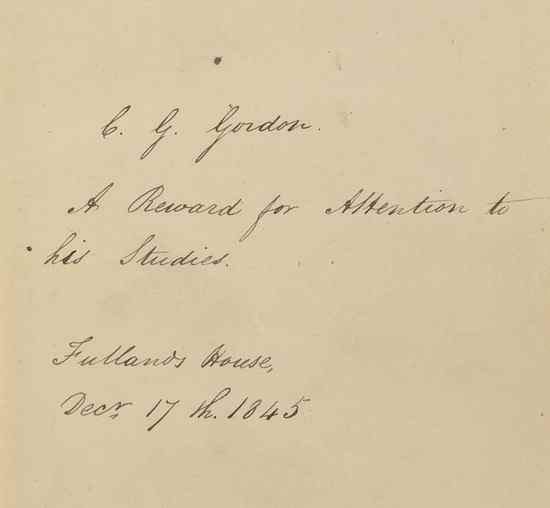 C. G. Gordon.
A Reward for Attention to
his Studies.
Fullands House,
Decr 17 th. 1845